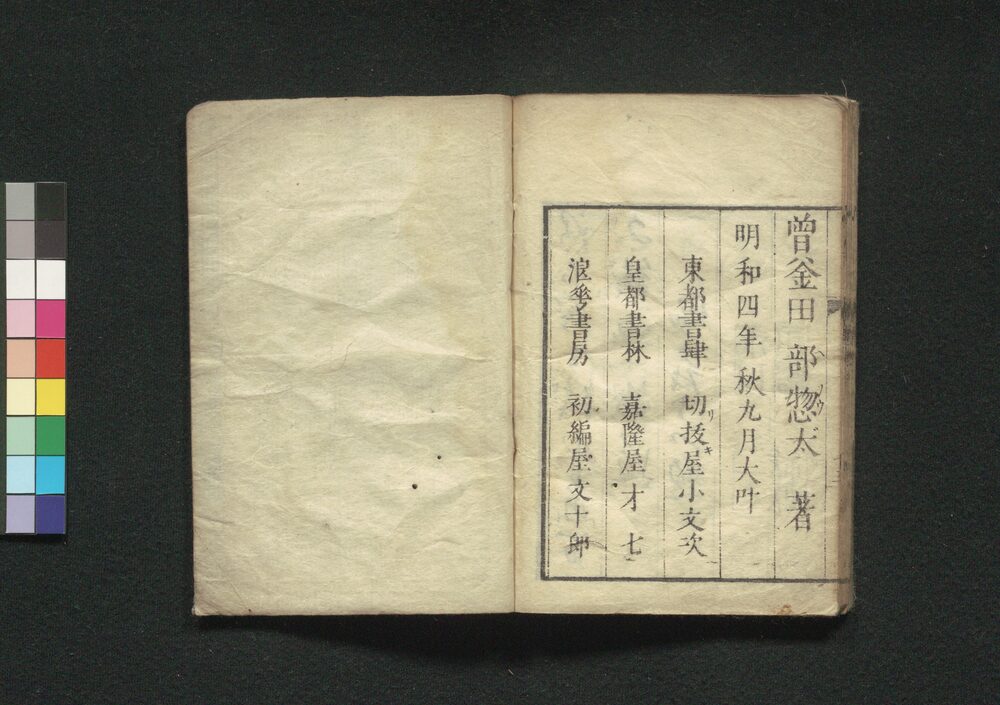 曾釜田 部惣太 著
明和四年秋九月大叶
東都書肆 切リ抜キ屋小文次
皇都書林 嘉隆屋才七
浪華書房 初編屋文十郎